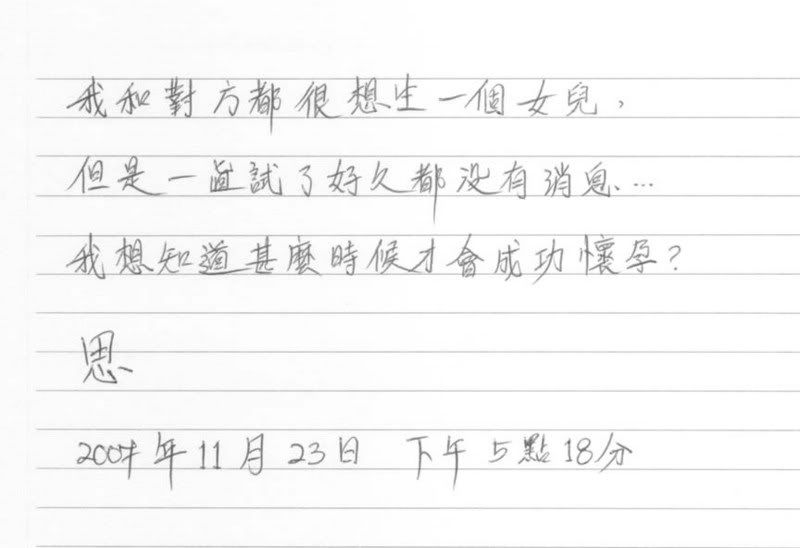 我和對方都很想生一個女兒，
但是一直試了好久都没有消息…
我想知道甚麼時候才會成功懷孕？
思
年11月23日 下午5點18分